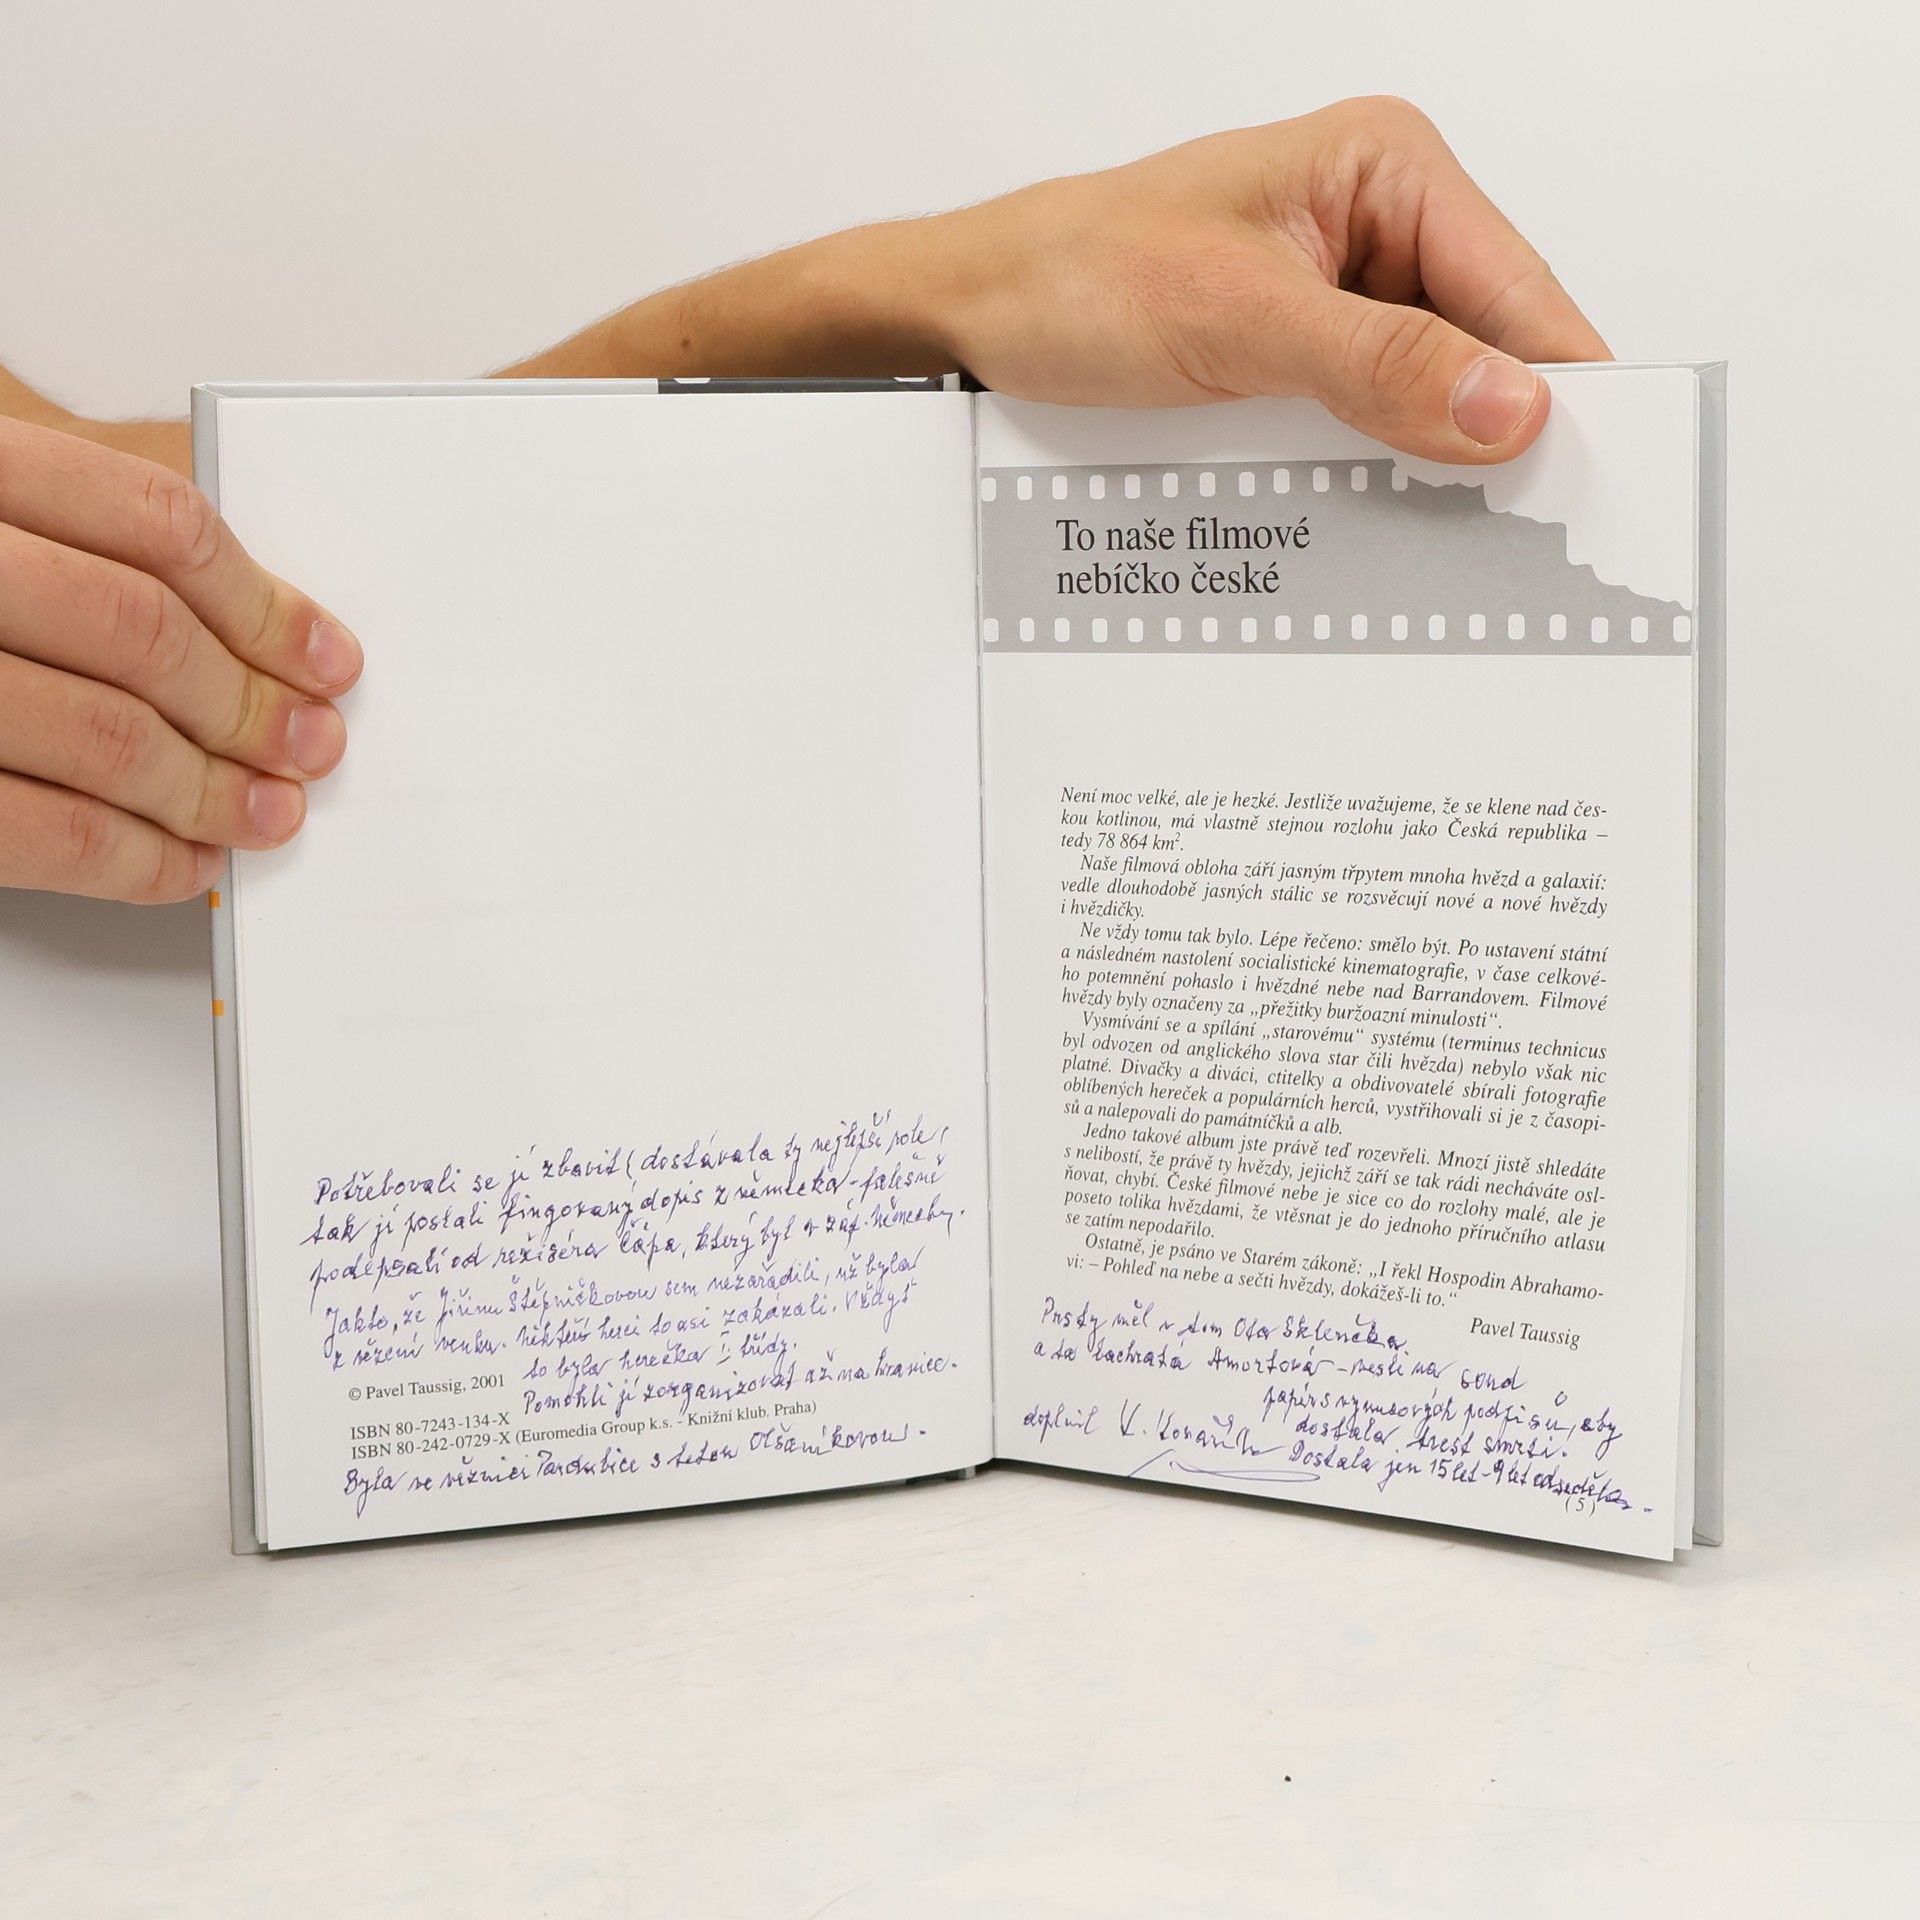 Potřebovali se jí zbavit (dostávala ty nejlepší role,
tak jí poslali fingovaný dopis z německa - falešně
podepsali od režiséra Čápa, který byl v záp. německu.
Jakto, že Jiřinu Štěpničkovou sem nezařadili, už byla
z vězení venku. Někteří herci to asi zakázali. Vždyť
to byla herečka I. třídy.
© Pavel Taussig, 2001
Pomohli jí zorganizovat až na hranice.
ISBN 80-7243-134-X
ISBN 80-242-0729-X (Euromedia Group k.s. - Knižní klub. Praha)
Byla ve věznici Pardubice s tetou Olšaníkovou.
To naše filmové
nebíčko české
Není moc velké, ale je hezké. Jestliže uvažujeme, že se klene nad čes-
kou kotlinou, má vlastně stejnou rozlohu jako Česká republika –
tedy 78 864 km².
Naše filmová obloha září jasným třpytem mnoha hvězd a galaxií:
vedle dlouhodobě jasných stálic se rozsvěcují nové a nové hvězdy
i hvězdičky.
Ne vždy tomu tak bylo. Lépe řečeno: smělo být. Po ustavení státní
a následném nastolení socialistické kinematografie, v čase celkové-
ho potemnění pohaslo i hvězdné nebe nad Barrandovem. Filmové
hvězdy byly označeny za „přežitky buržoazní minulosti“.
Vysmívání se a spílání „starovému“ systému (terminus technicus
byl odvozen od anglického slova star čili hvězda) nebylo však nic
platné. Divačky a diváci, ctitelky a obdivovatelé sbírali fotografie
oblíbených hereček a populárních herců, vystřihovali si je z časopi-
sů a nalepovali do památníčků a alb.
Jedno takové album jste právě teď rozevřeli. Mnozí jistě shledáte
s nelibostí, že právě ty hvězdy, jejichž září se tak rádi necháváte osl-
ňovat, chybí. České filmové nebe je sice co do rozlohy malé, ale je
poseto tolika hvězdami, že vtěsnat je do jednoho příručního atlasu
se zatím nepodařilo.
Ostatně, je psáno ve Starém zákoně: „I řekl Hospodin Abrahamo-
vi: – Pohleď na nebe a sečti hvězdy, dokážeš-li to.“
Pavel Taussig
Prsty měl v tom Ota Sklenčka.
a ta Amortová - nesli na soud
papír s vynucových podpisů, aby
dostala trest smrti.
doplnil
Dostala jen 15 let - 9 let odseděla.
(5)